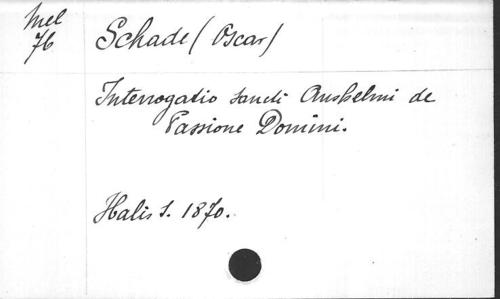 Mel
76
Schade (Oscar)
Interrogatio sancti Anshelmi de
Passione Domini.
Halis S. 1870.